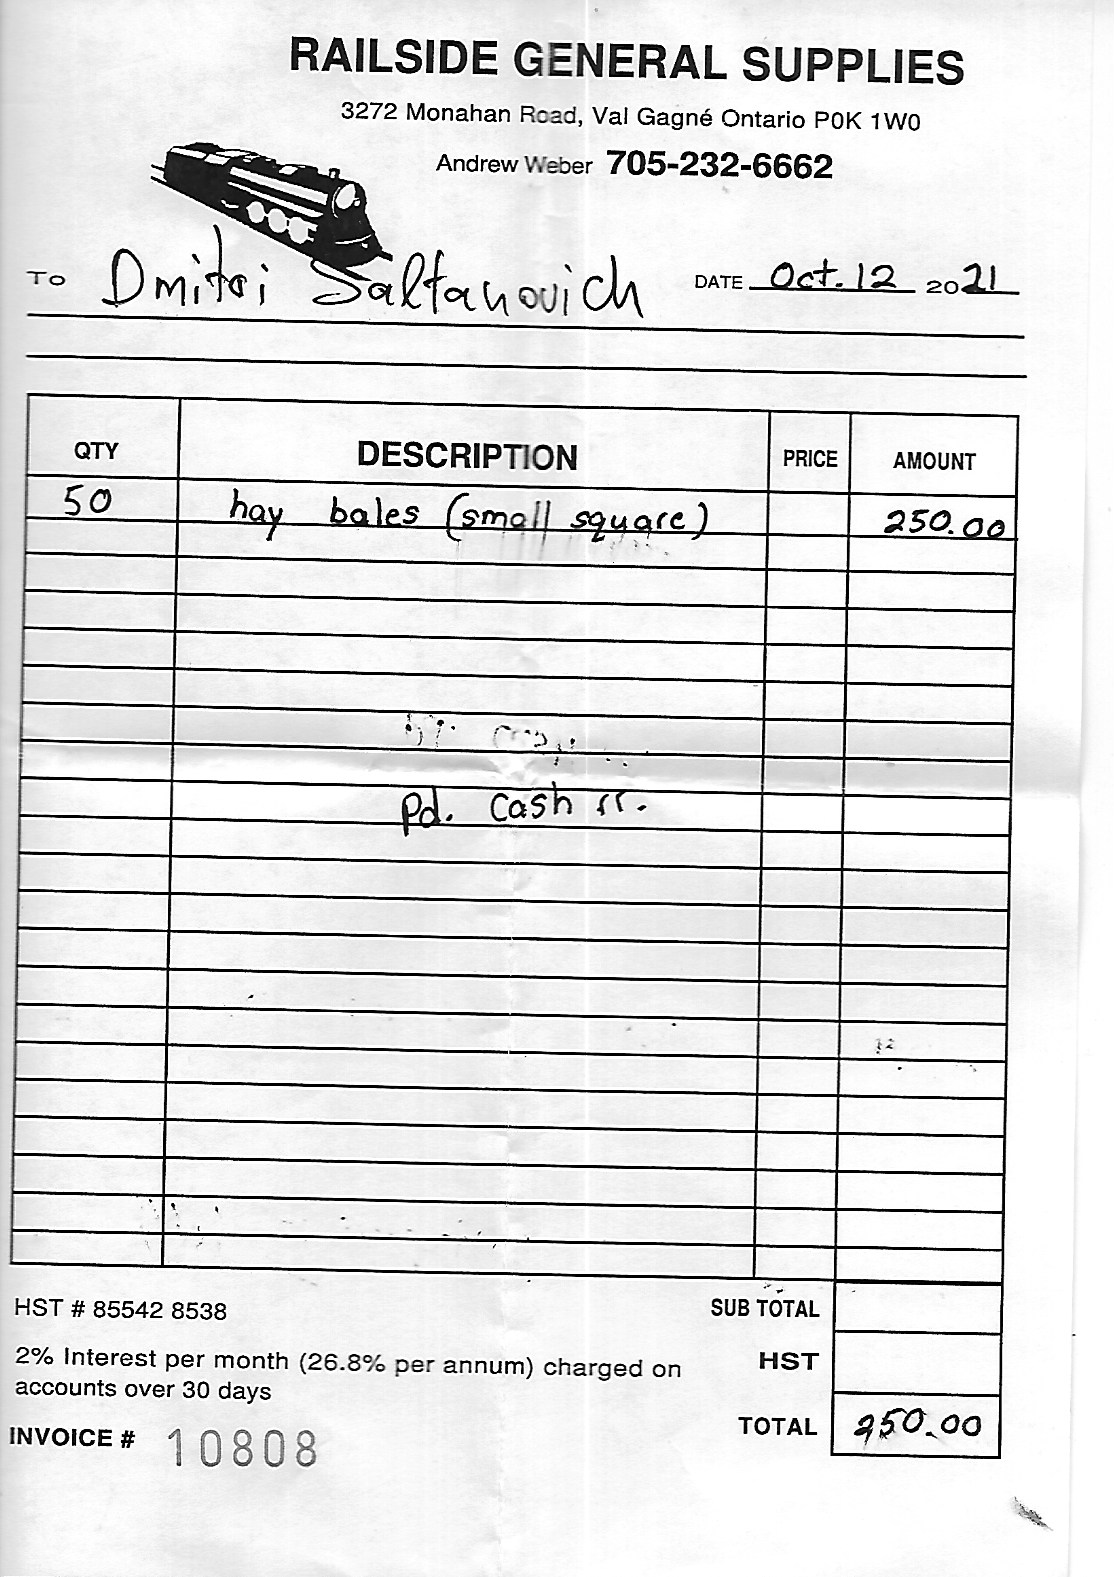 RAILSIDE GENERAL SUPPLIES
3272 Monahan Road, Val Gagné Ontario P0K 1W0
Andrew Weber 705-232-6662
TO Dmitri Saltanovich DATE Oct. 12 2021
QTY DESCRIPTION PRICE AMOUNT
50 hay bales (small square) 250.00
Pd. Cash
HST # 85542 8538 SUB TOTAL
2% Interest per month (26.8% per annum) charged on HST
accounts over 30 days
INVOICE # 10808 TOTAL 250.00